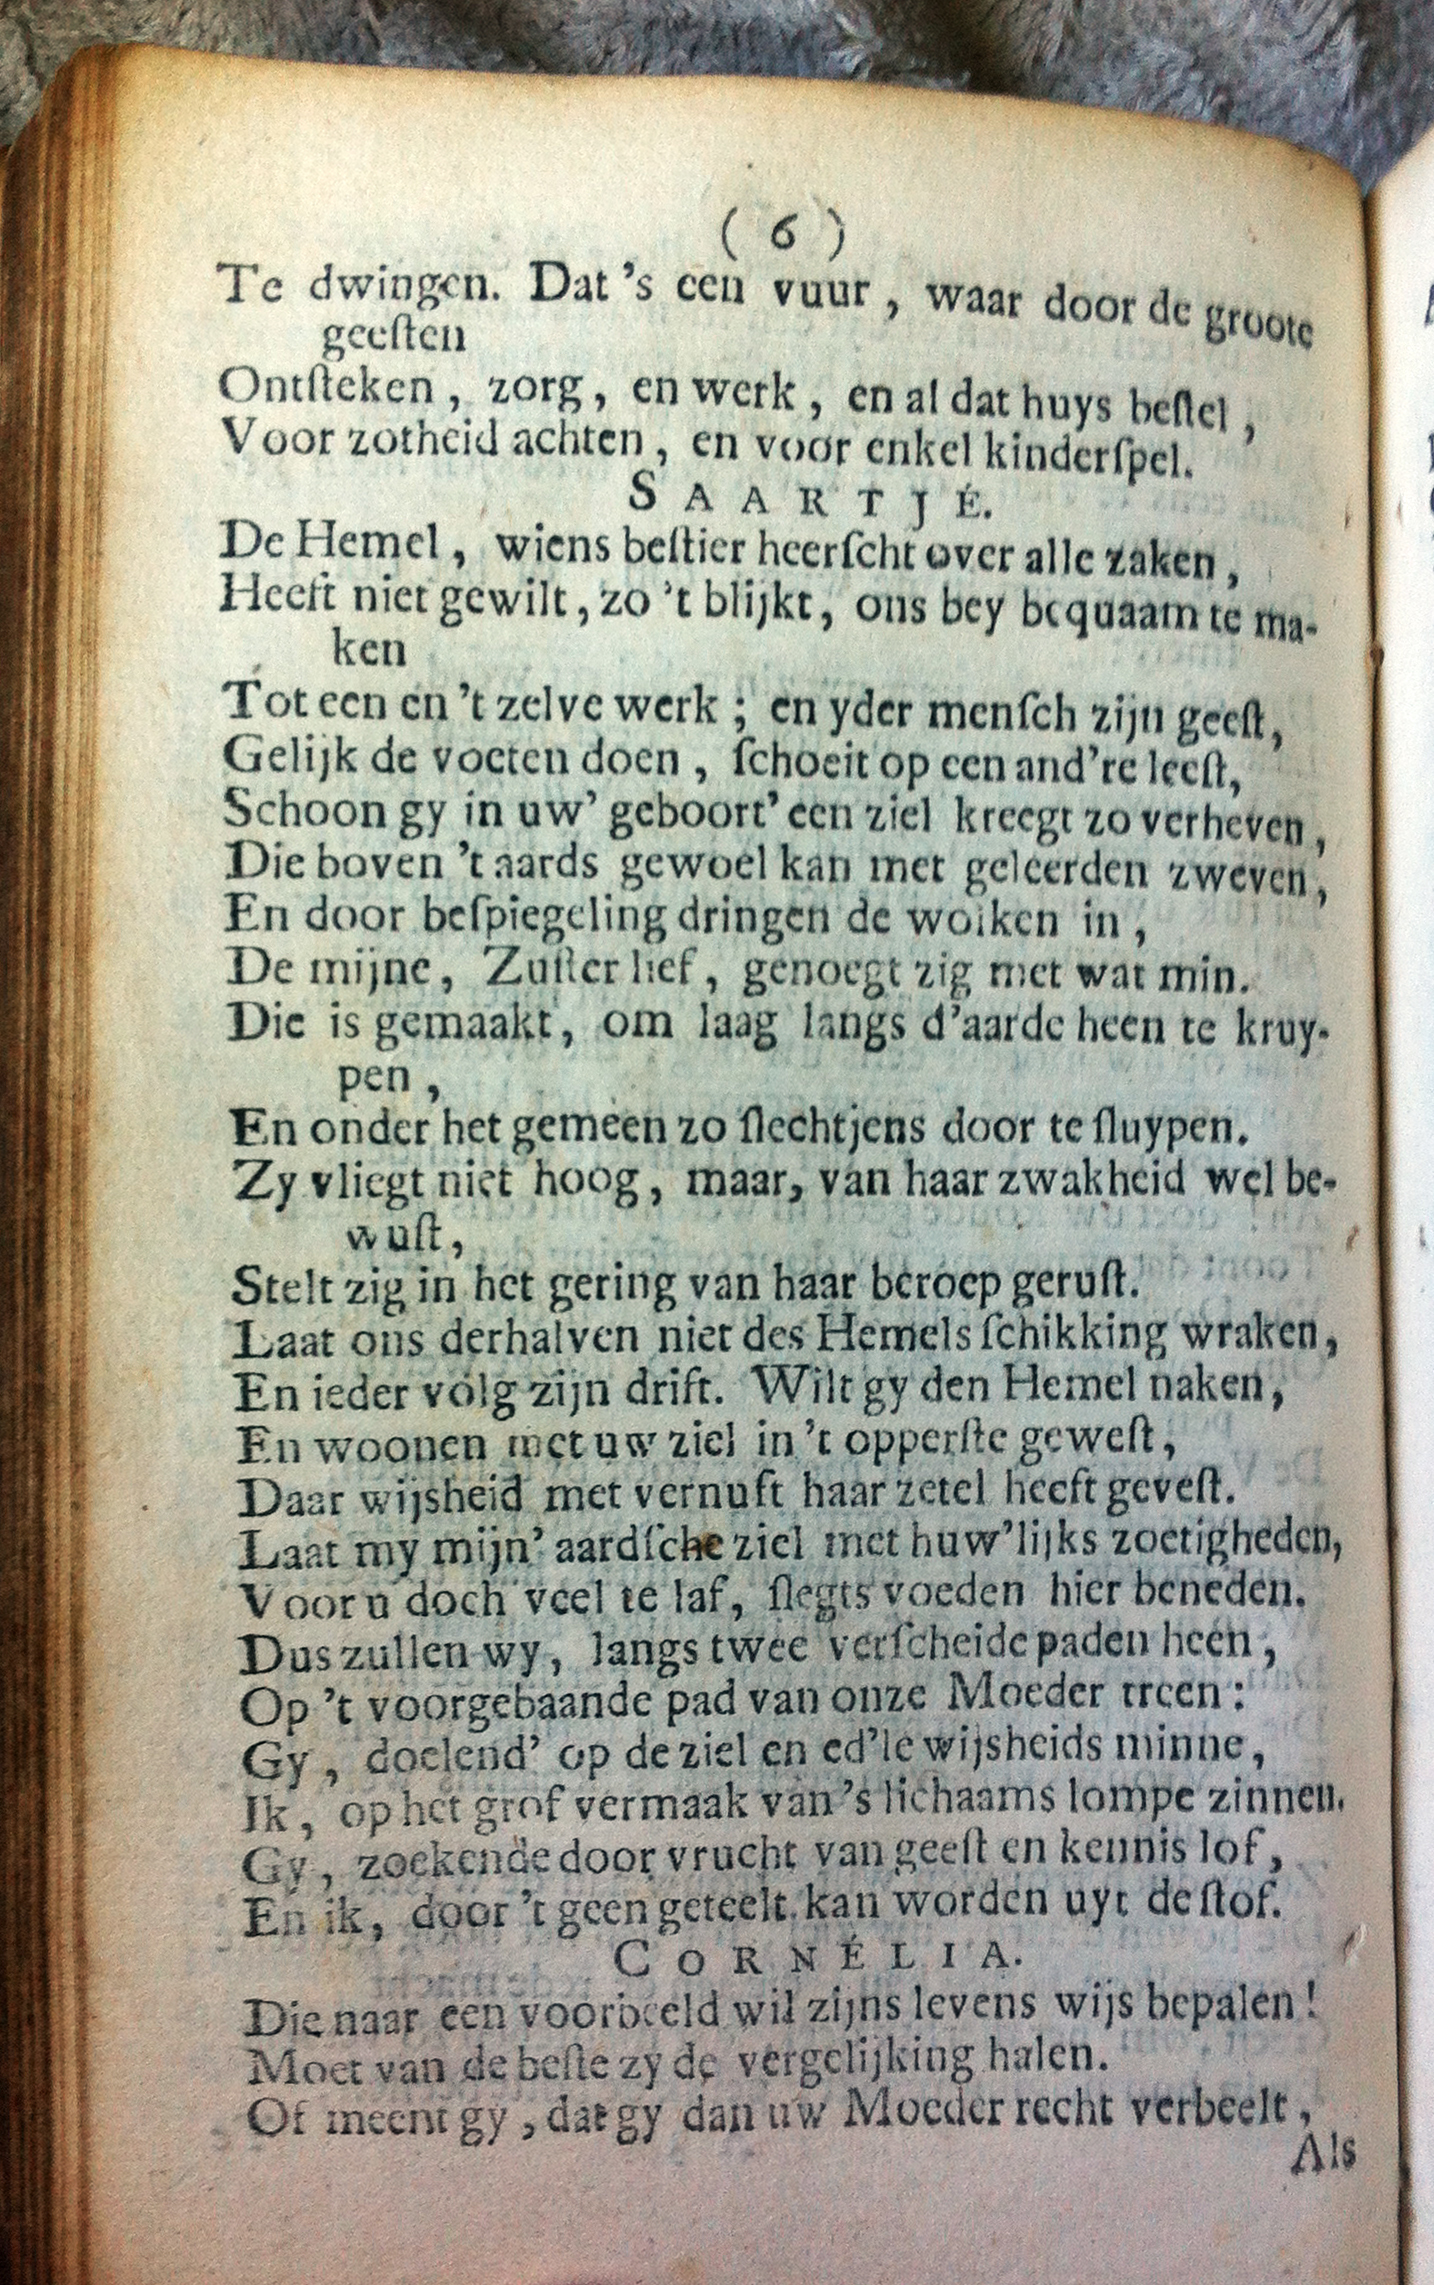 ( 6 )
Te dwingen. Dat 's een vuur, waar door de groote
geeſten
Ontſteken, zorg, en werk, en al dat huys beſtel,
Voor zotheid achten, en voor enkel kinderſpel.
SAARTJÉ.
De Hemel, wiens beſtier heerſcht over alle zaken,
Heeft niet gewilt, zo 't blijkt, ons bey bequaam te ma-
ken
Tot een en 't zelve werk; en yder menſch zijn geeſt,
Gelijk de voeten doen, ſchoeit op een and're leeſt,
Schoon gy in uw' geboort' een ziel kreegt zo verheven,
Die boven 't aards gewoel kan met geleerden zweven,
En door beſpiegeling dringen de wolken in,
De mijne, Zuſter lief, genoegt zig met wat min.
Die is gemaakt, om laag langs d'aarde heen te kruy-
pen,
En onder het gemeen zo ſlechtjens door te ſluypen.
Zy vliegt niet hoog, maar, van haar zwakheid wel be-
wuſt,
Stelt zig in het gering van haar beroep geruſt.
Laat ons derhalven niet des Hemels ſchikking wraken,
En ieder volg zijn drift. Wilt gy den Hemel naken,
En woonen met uw ziel in 't opperſte geweſt,
Daar wijsheid met vernuft haar zetel heeft geveſt.
Laat my mijn' aardſche ziel met huw'lijks zoetigheden,
Voor u doch veel te laf, ſlegts voeden hier beneden.
Dus zullen wy, langs twee verſcheide paden heen,
Op 't voorgebaande pad van onze Moeder treen:
Gy, doelend' op de ziel en ed'le wijsheids minne,
Ik, op het grof vermaak van 's lichaams lompe zinnen.
Gy, zoekende door vrucht van geeſt en kennis lof,
En ik, door 't geen geteelt kan worden uyt de ſtof.
CORNÉLIA.
Die naar een voorbeeld wil zijns levens wijs bepalen!
Moet van de beſte zy de vergelijking halen.
Of meent gy, dat gy dan uw Moeder recht verbeelt,
Als